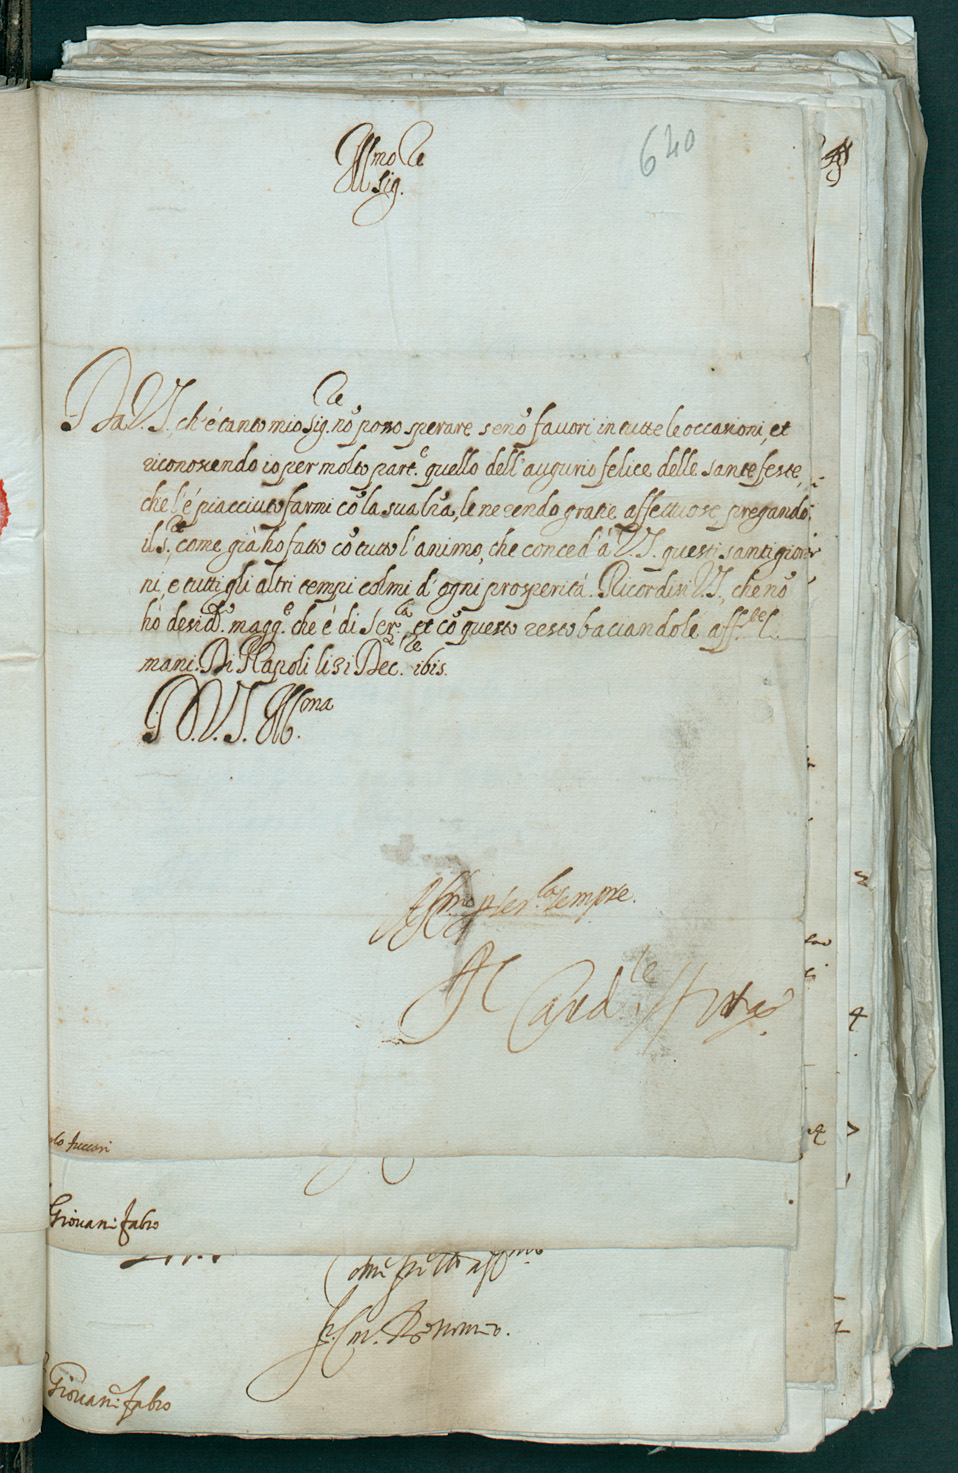 640
Ill.mo Sig.re
Da V.S. ch'é tanto mio Sig.re nõ posso sperare senõ favori in tutte le occasioni, et
riconoscendo io per molto part.e quello dell'augurio felice delle sante feste,
che l'é piacciuto farmi cõ la sua lrã, le ne rendo gratie affettuose pregando
il S.re come già ho fatto cõ tutto l'animo, che conced'à V.S. questi santi gior
ni, e tutti gli altri tempi colmi d'ogni prosperità. Ricordisi V.S., che nõ
hó desid.o magg.e che é di ser.la et cõ questo resto baciandole aff.te l.
mani. Di Napoli li 31 Dec.
D. V. S. Ill.ma
Aff.mo per ser.la sempre.
Il Card.le
Giovani fabro
Giovani fabro